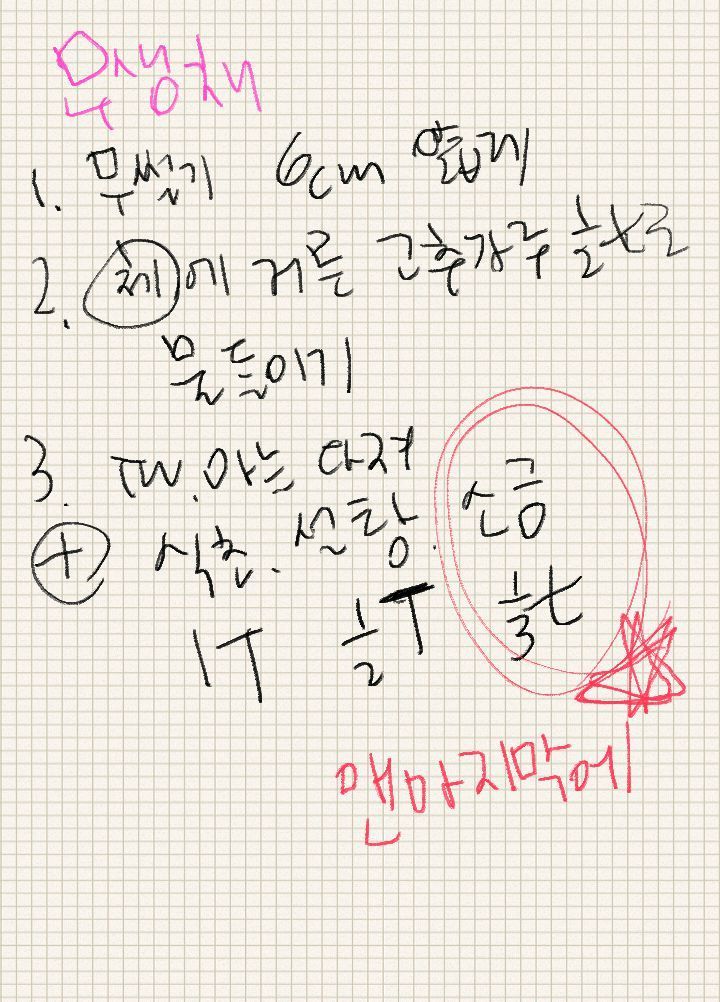 무생채
1. 무썰기 6cm 얇게
2. 체에 거른 고춧가루 1/2t로
물들이기
3. 파.마늘 다져
+ 식초. 설탕. 소금
1T 1/2T 1/3t
맨마지막에